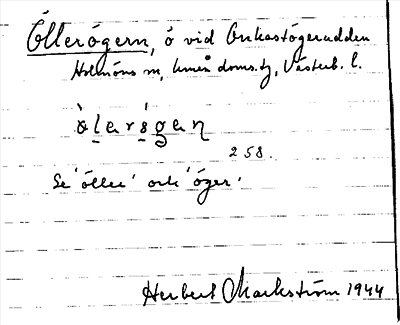 Öllerögern, ö vid Onkastögerudden
Holmöns sn, Umeå doms.tg, Västerb. l.
258.
Se 'öller' och 'öger'.
Herbert Markström 1944